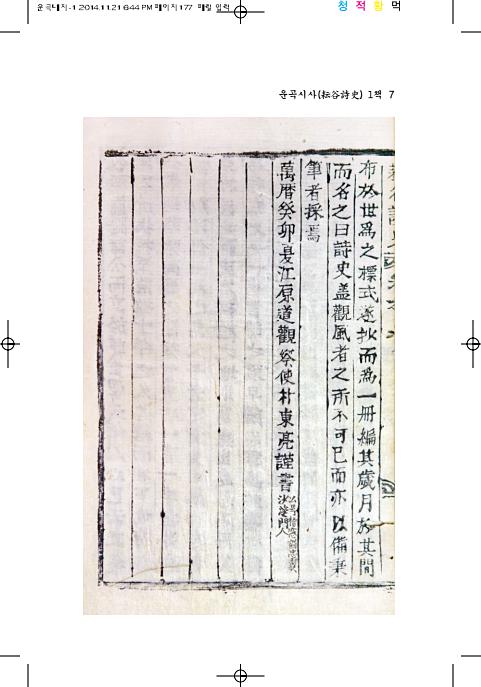 운곡내지-1 2014.11.21 6:44 PM 페이지177 매킨 입력
청 적 황 먹
운곡시사(耘谷詩史) 1책 7
布於世爲之標式遂抄而爲一冊編其歲月於其間
而名之曰詩史盖觀風者之所不可已而亦以備秉
筆者採焉
萬曆癸卯夏江原道觀察使朴東亮謹書
沙堂門人